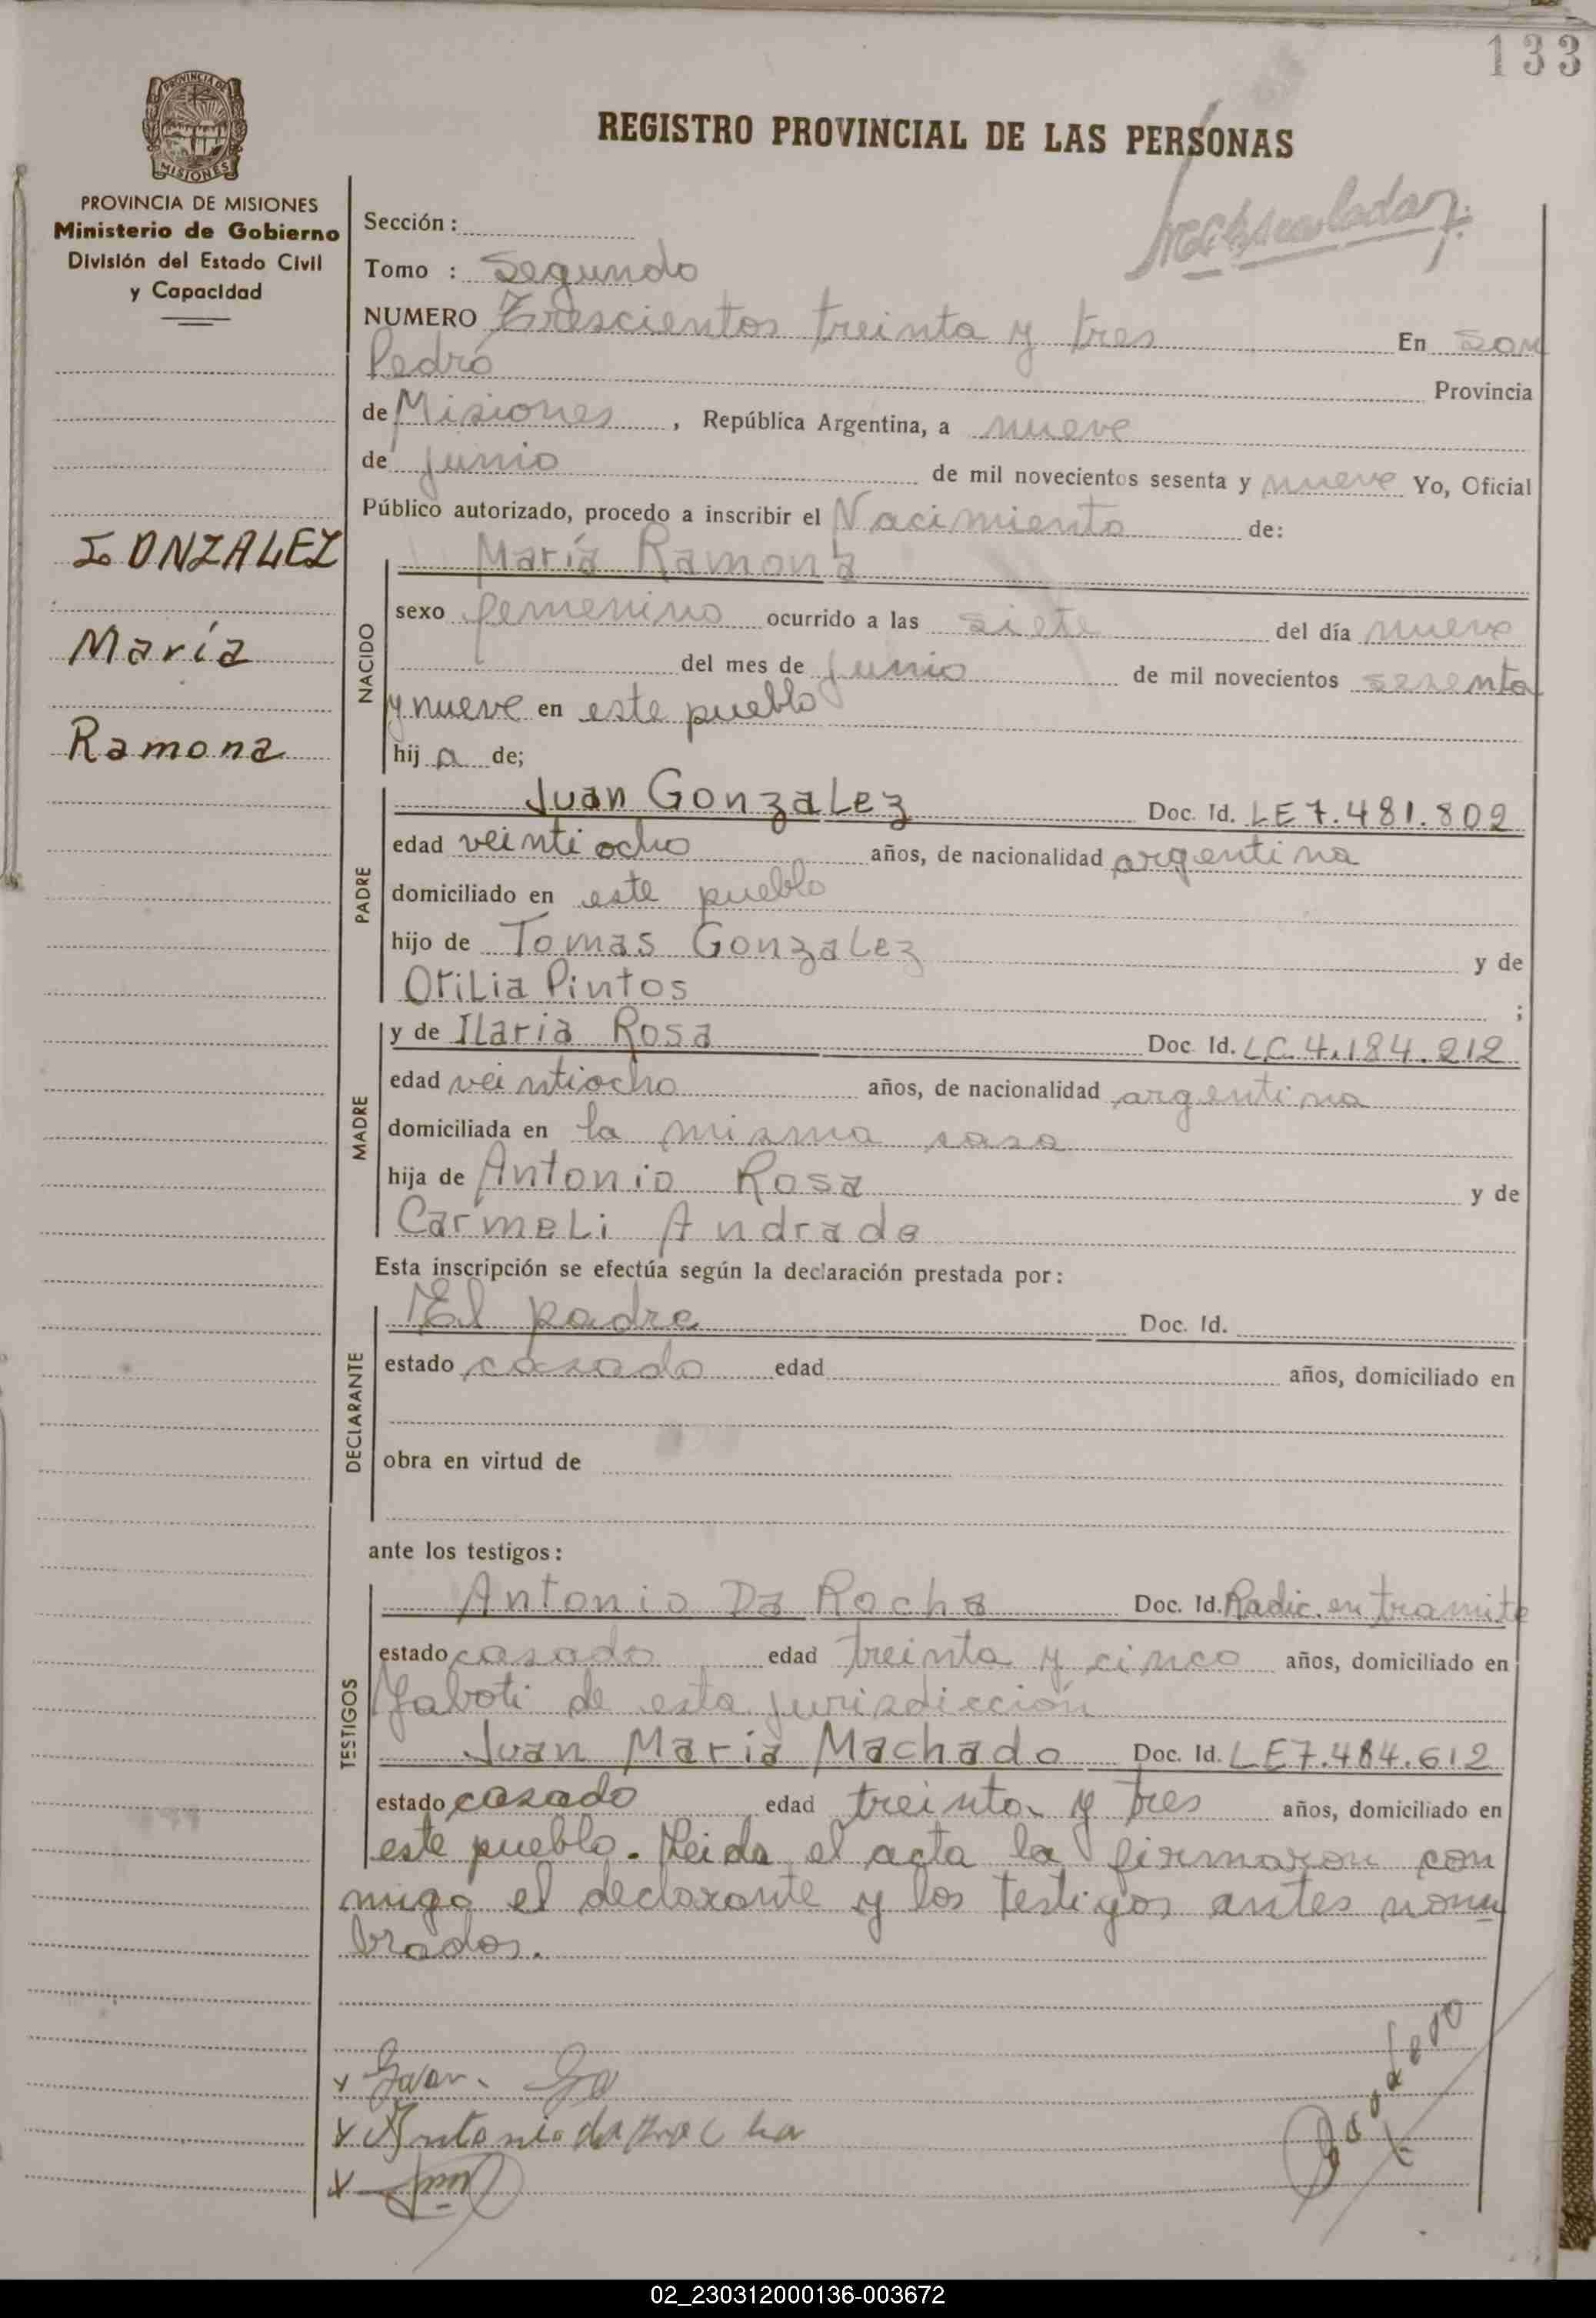 133
REGISTRO PROVINCIAL DE LAS PERSONAS
PROVINCIA DE MISIONES
MISIONES
PROVINCIA DE MISIONES
Ministerio de Gobierno
División del Estado Civil
y Capacidad
GONZALEZ
María
Ramona
Sección :
Tomo : Segundo
NUMERO Trescientos treinta y tres En San
Pedro Provincia
de Misiones , República Argentina, a nueve
de junio de mil novecientos sesenta y nueve Yo, Oficial
Público autorizado, procedo a inscribir el Nacimiento de:
NACIDO
María Ramona
sexo femenino ocurrido a las siete del día nueve
del mes de junio de mil novecientos sesenta
y nueve en este pueblo
hij a de;
PADRE
Juan Gonzalez Doc. Id. LE 7.481.802
edad veintiocho años, de nacionalidad argentina
domiciliado en este pueblo
hijo de Tomas Gonzalez y de
Otilia Pintos ;
MADRE
y de Ilaria Rosa Doc. Id. LC. 4.184.212
edad veintiocho años, de nacionalidad argentina
domiciliada en la misma casa
hija de Antonio Rosa y de
Carmeli Andrade
Esta inscripción se efectúa según la declaración prestada por:
DECLARANTE
El padre Doc. Id.
estado casado edad años, domiciliado en
obra en virtud de
ante los testigos:
TESTIGOS
Antonio Da Rocha Doc. Id. Radic. en tramite
estado casado edad treinta y cinco años, domiciliado en
Yaboti de esta jurisdicción
Juan Maria Machado Doc. Id. LE 7.484.612
estado casado edad treinta y tres años, domiciliado en
este pueblo. Leida el acta la firmaron con
migo el declarante y los testigos antes nom
brados.
x Juan. Go
x Antonio da rocha
x
02_230312000136-003672